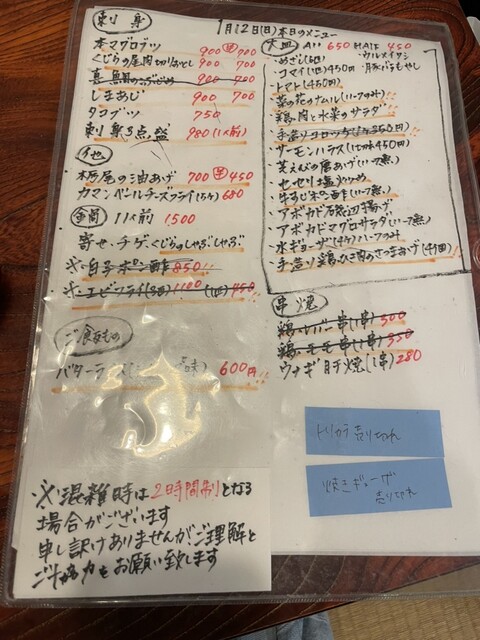 1月12日(日)本日のメニュー
刺身
本マグロブツ 900 半700
くじらの尾肉切りおとし 900 700
しまあじ 900 700
タコブツ 750
刺身3点盛 980(1人前)
他
栃尾の油あげ 700 半450
カマンベールチーズフライ(5ケ) 680
鍋 1人前 1500
寄せ・チゲ・くじらのしゃぶしゃぶ
※白子ポン酢850!!
※エビフライ(3本)1100 (1本)450
ご飯もの
バターラ 味) 600円!!
大皿 All 650 HALF 450
・めざし(5匹) ・ウルメイワシ
・コマイ(1匹)450円
・トマト(450円)
・菜の花のナムル(ハーフのみ)
・鶏肉と水菜のサラダ
・手造りコロッケ
・サーモンハラス(1ケ450円)
・芝えびの唐あげ(ハーフ無)
・セセリ塩炒め
・牛すじポン酢(ハーフ無)
・アボカド磯辺揚げ
・アボカドマグロサラダ(ハーフ無)
・水ギョーザ(4ケ)ハーフのみ
・手造り鶏ひき肉のさつまあげ(4個)!!
串焼
鶏レバー串(1串)300
鶏モモ串(1串)350
ウナギ肝焼(1串)280
トリカラ売り切れ
焼きギョーザ
売り切れ
※混雑時は2時間制となる
場合がございます
申し訳けありませんがご理解と
ご協力をお願い致します